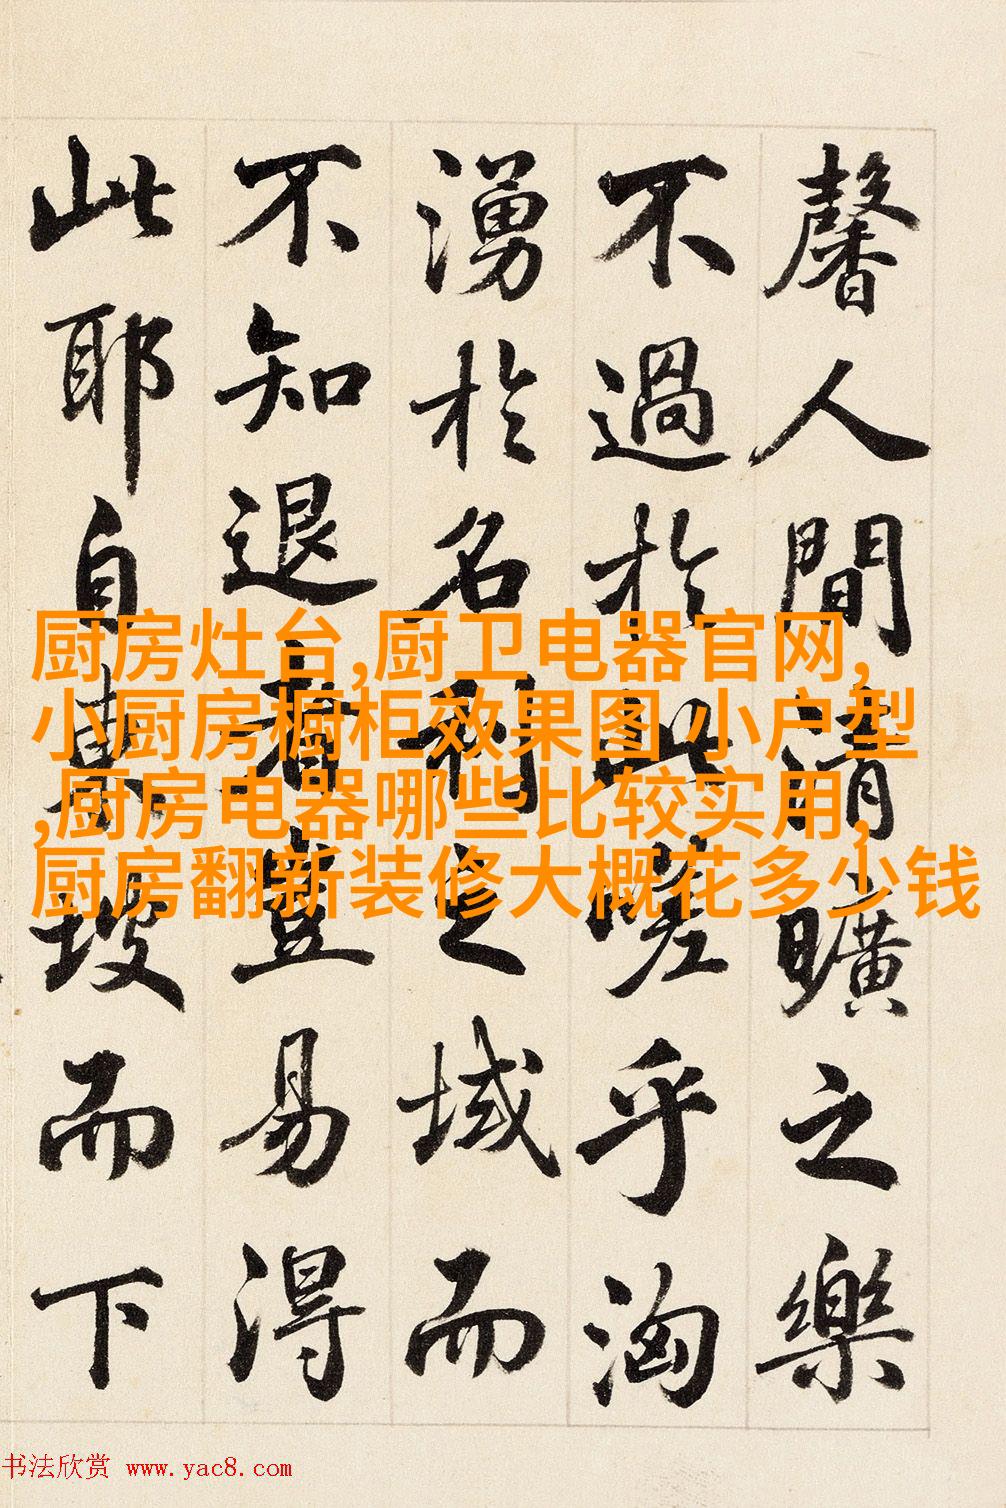 馨人間清曠之樂
不過於此嗟乎洶
湧於名利之域而
不知退者豈易得
此耶自東坡而下
厨房灶台,厨卫电器官网,
小厨房橱柜效果图 小户型
,厨房电器哪些比较实用,
厨房翻新装修大概花多少钱
书法欣赏 www.yac8.com